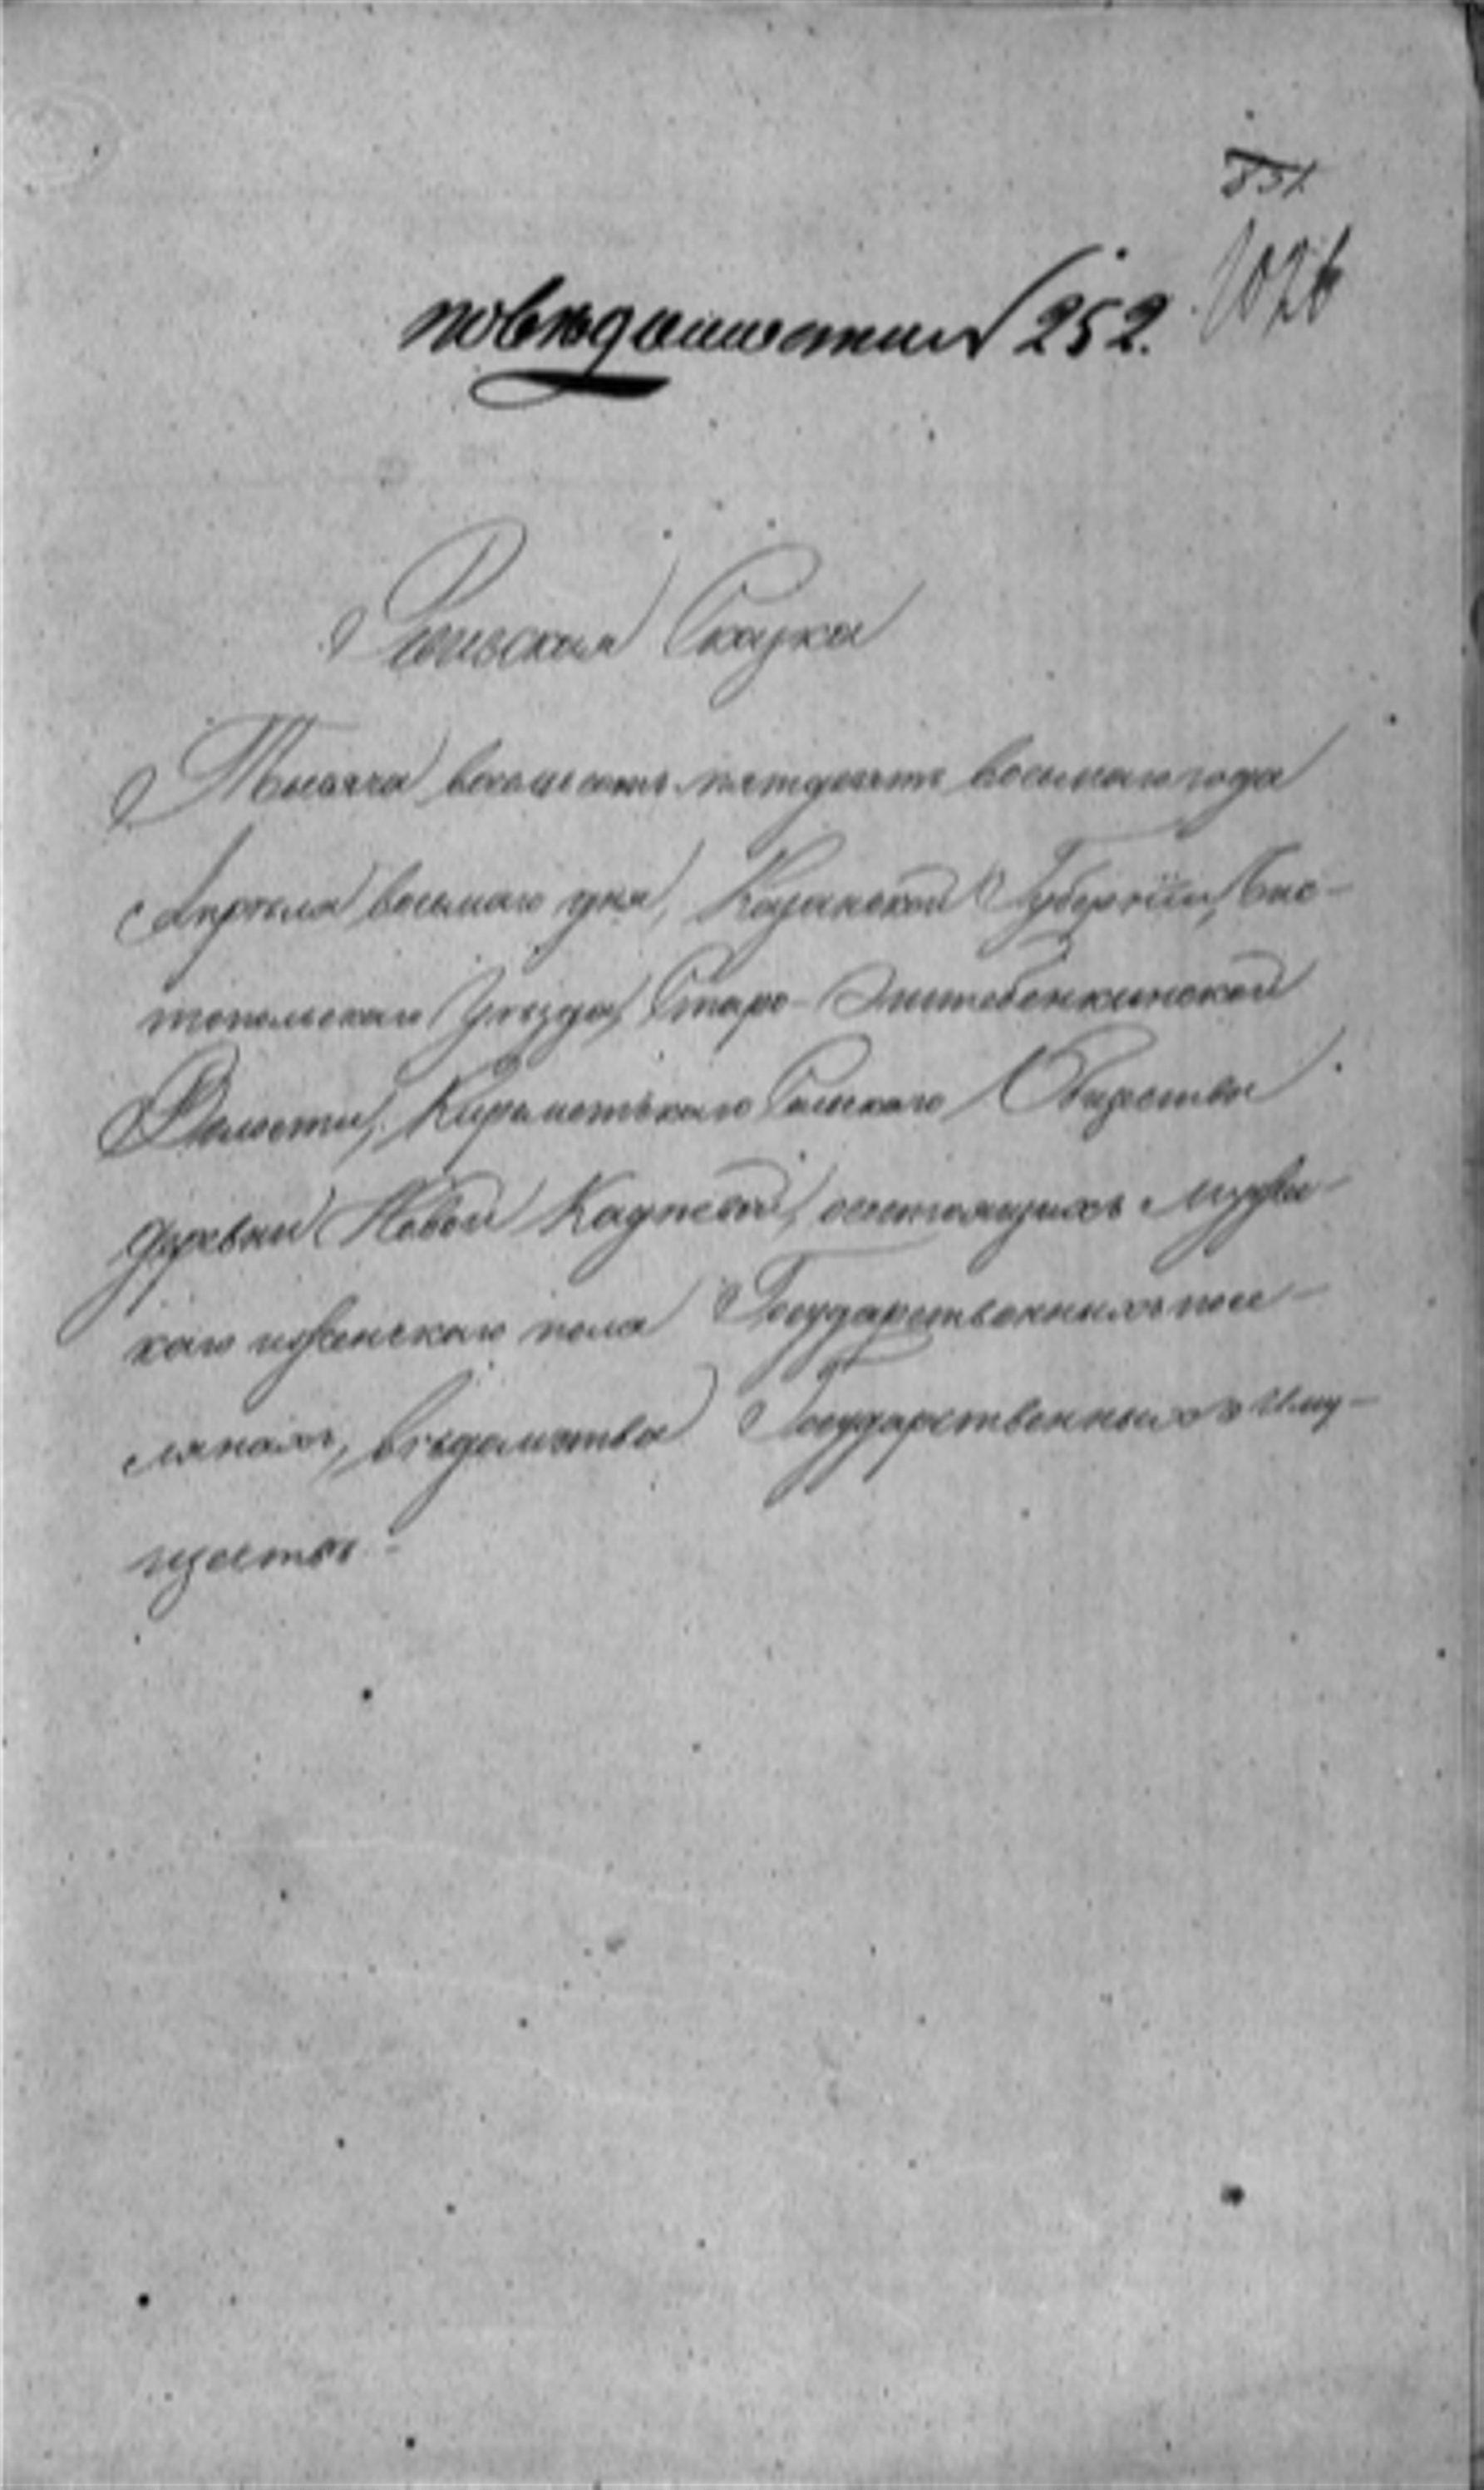 851
1026
по вѣдомости № 252.
Ревизская Сказка
Тысяча восемьсотъ пятдесятъ восьмаго года
Апрѣля восьмаго дня, Казанской Губерніи, Чис-
топольскаго Уѣзда, Старо-
Волости, Кирemetьскаго Сельскаго Общества
деревни Новой Кадѣевой, состоящихъ мужес-
каго и женскаго пола Государственныхъ посе-
лянахъ, вѣдомства Государственныхъ Иму-
ществъ.